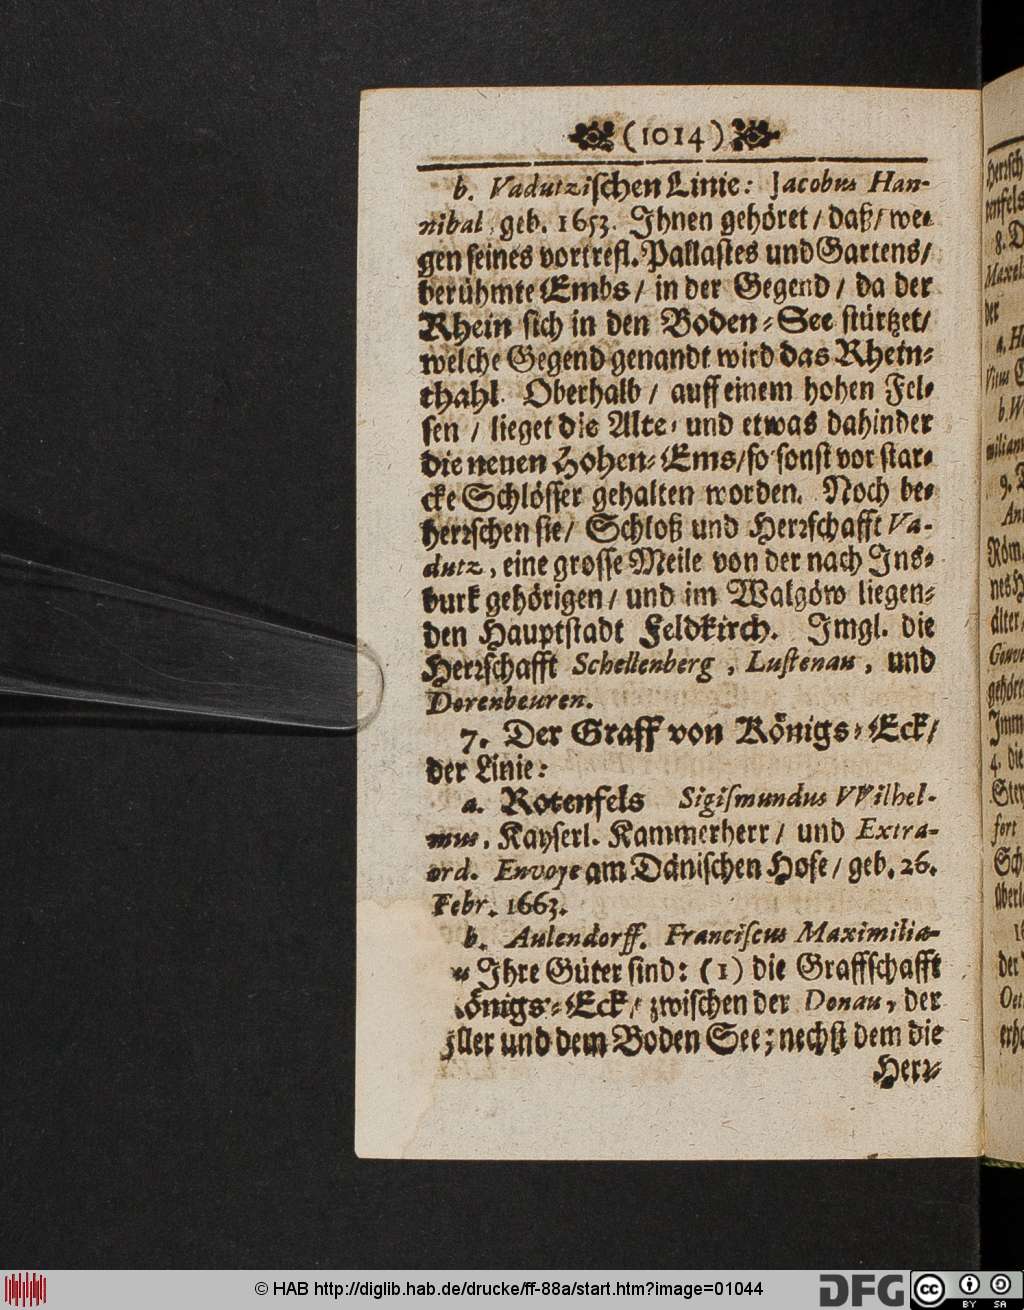 (1014)
b. Vadutzischen Linie: Jacobus Han-
nibal, geb. 1653. Ihnen gehöret / daß / we-
gen seines vortrefl. Pallastes und Gartens /
berühmte Embs / in der Gegend / da der
Rhein sich in den Boden-See stürtzet /
welche Gegend genandt wird das Rhein-
thahl. Oberhalb / auff einem hohen Fel-
sen / lieget die Alte- und etwas dahinder
die neuen Hohen-Ems / so sonst vor star-
cke Schlösser gehalten worden. Noch be-
herrschen sie / Schloß und Herrschafft Va-
dutz, eine grosse Meile von der nach Ins-
burk gehörigen / und im Walgöw liegen-
den Hauptstadt Feldkirch. Imgl. die
Herrschafft Schellenberg, Lustenau, und
Dorenbeuren.
7. Der Graff von Königs-Eck /
der Linie:
a. Rotenfels Sigismundus VVilhel-
mus, Kayserl. Kammerherr / und Extra-
ord. Envoye am Dänischen Hofe / geb. 26.
Febr. 1663.
b. Aulendorff. Franciscus Maximilia-
Ihre Güter sind: (1) die Graffschafft
önigs-Eck / zwischen der Donau, der
ller und dem Boden See; nechst dem die
Herr-
© HAB http://diglib.hab.de/drucke/ff-88a/start.htm?image=01044
DFG
cc
BY SA